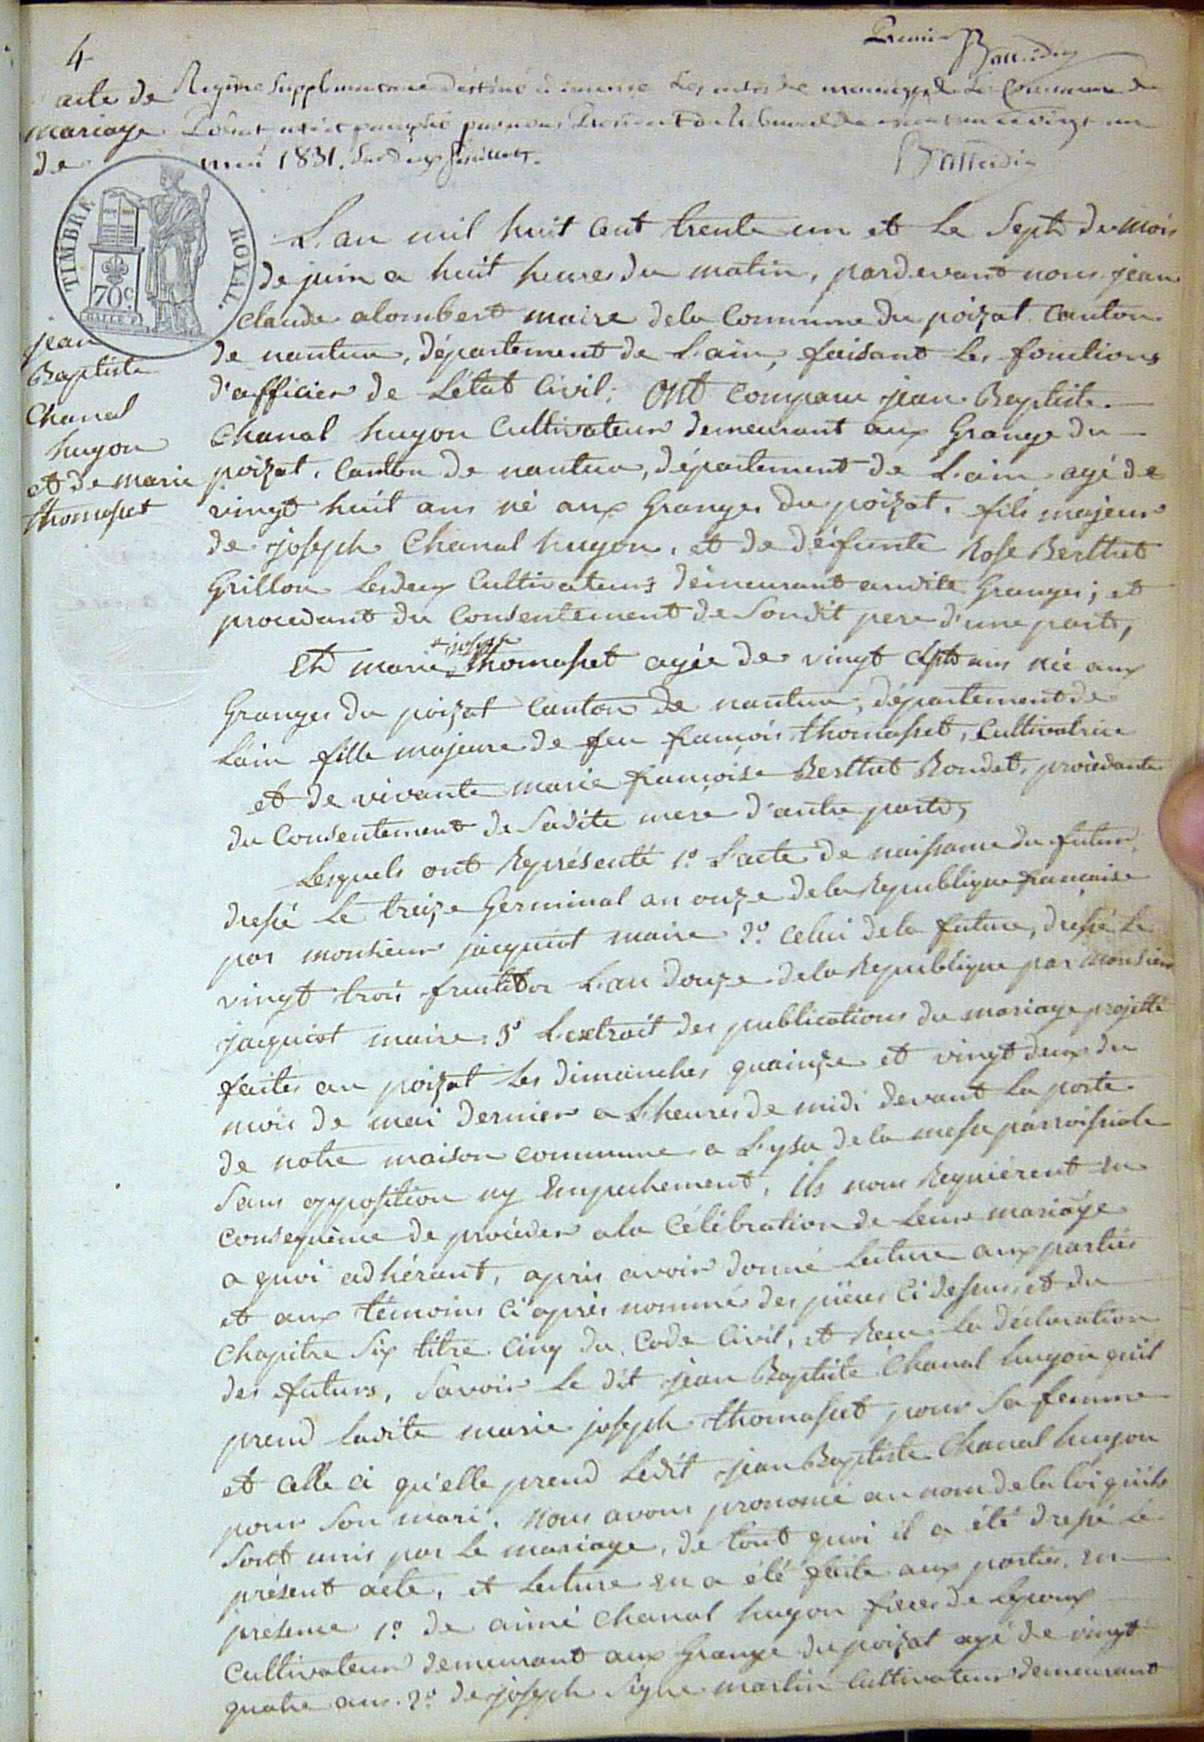 4
Premier
acte de
mariage
de
Registre Supplémentaire destiné à inscrire Les actes de mariage de la Commune de
mai 1831. Sur deux feuillets.
TIMBRE ROYAL.
70c
jean
Baptiste
Chanal
hugon
et de marie
thomasset
L'an mil huit cent trente un et le Sept du mois
de juin a huit heures du matin, pardevant nous jean
claude alombert maire dela Commune du poizat canton
de nantua, département de L'ain, faisant les fonctions
d'officier de L'état Civil. Ont comparu jean Baptiste
Chanal hugon Cultivateur demeurant aux Grange du
poizat, Canton de nantua, département de L'ain agé de
vingt huit ans né aux Granges du poizat, fils majeur
de joseph Chanal hugon, et de défunte Rose Berthet
Grillon lesdeux Cultivateurs demeurant audite Granges; et
procedant du Consentement de Sondit pere d'une part,
Et marie joseph thomasset agée de vingt Sept ans née aux
Granges du poizat Canton de nantua, département de
L'ain fille majeure de feu françois thomasset, Cultivatrice
et de vivante marie françoise Berthet Bondet, procedante
du Consentement de Sadite mere d'autre part,
Lesquels ont Représenté 1º L'acte de naissance du futur,
dressé Le treize Germinal an onze dela Republique francaise
par monsieur jacquiot maire 2º celui dela future, dressé Le
vingt trois fructidor L'an douze dela Republique par monsieur
jacquiot maire. 3º L'extrait des publications du mariage projetté
faites au poizat les dimanches quainze et vingt deux du
mois de mai dernier a L'heures de midi devant La porte
de notre maison commune a L'ysu de la messe parroissiale
Sans opposition ny Empechement. ils nous Requièrent en
consequence de procéder ala Célébration de leur mariage
a quoi adhérant, après avoir donné lecture aux parties
et aux témoins Ci après nommés des pièces Ci dessus et du
Chapitre Six titre Cinq du Code Civil, et Recu la déclaration
des futurs, Savoir le dit jean Baptiste Chanal hugon quil
prend ladite marie joseph thomasset pour Sa femme
et Celle ci qu'elle prend ledit jean Baptiste Chanal hugon
pour Son mari. Nous avons prononcé au nom de la loi quils
Sont unis par le mariage, de tout quoi il a été dressé Le
présent acte, et lecture en a été faite aux parties, en
présence 1º de aimé Chanal hugon frere de L'epoux
Cultivateur demeurant aux Grange du poizat agé de vingt
quatre ans. 2º de joseph martin Cultivateur demeurant